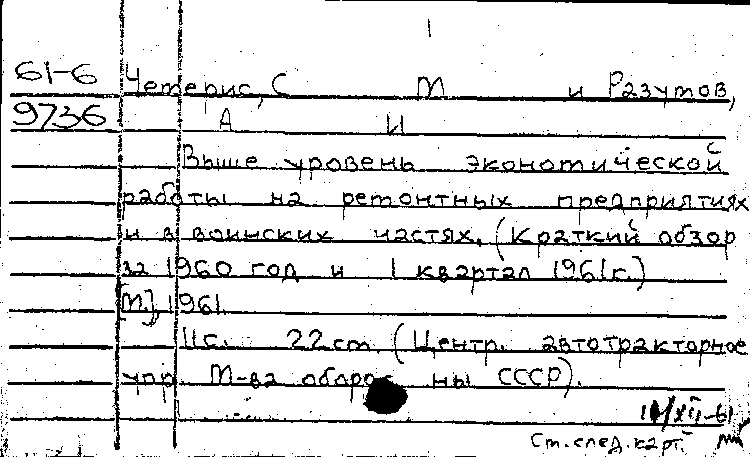 1
61-6 Четерис, С М и Разумов,
9736 А И
Выше уровень экономической
работы на ремонтных предприятиях
и в воинских частях. (Краткий обзор
за 1960 год и 1 квартал 1961г.)
[М.], 1961.
11с. 22см. (Центр. автотракторное
упр. М-ва оборо ны СССР).
/XII-61
См.след.карт.